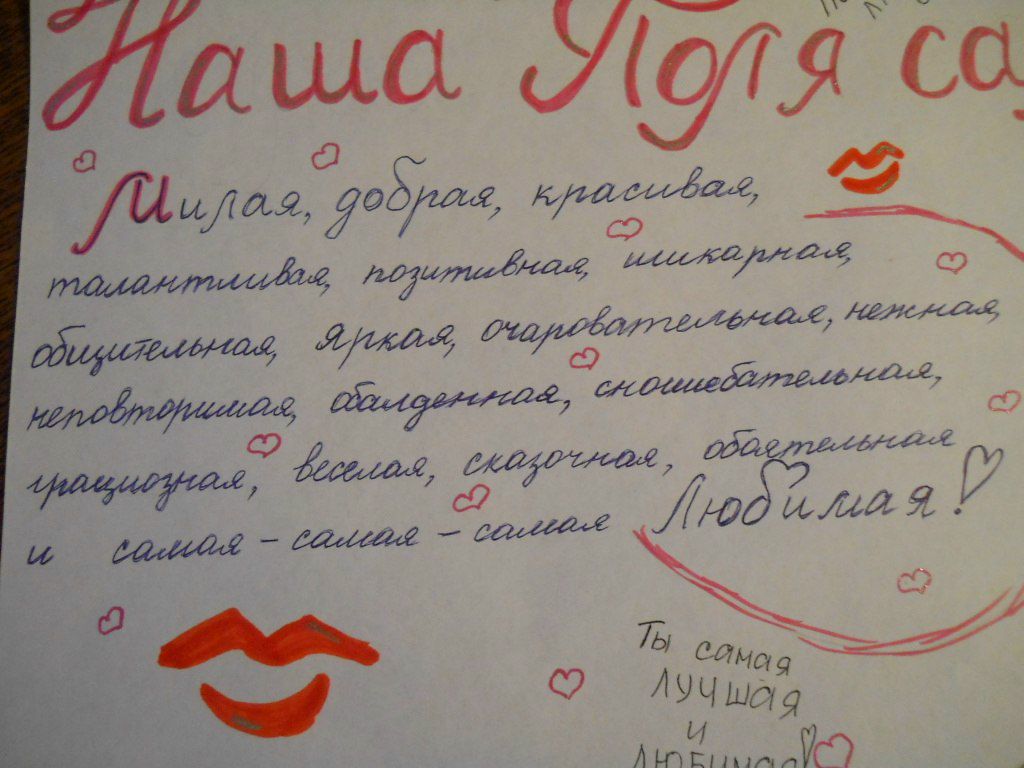 Наша Поля са
Милая, добрая, красивая,
талантливая, позитивная, шикарная,
общительная, яркая, очаровательная, нежная,
неповторимая, обалденная, сношебательная,
грациозная, веселая, сказочная, обоятельная
и самая - самая - самая Любимая!
Ты самая
ЛУЧШАЯ
и
ЛЮБИМАЯ